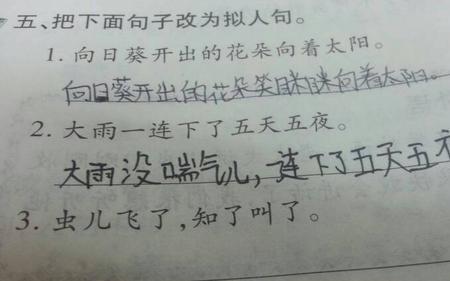 五、把下面句子改为拟人句。
1. 向日葵开出的花朵向着太阳。
向日葵开出的花朵笑眯眯向着太阳。
2. 大雨一连下了五天五夜。
大雨没喘气儿，连下了五天五
3. 虫儿飞了，知了叫了。